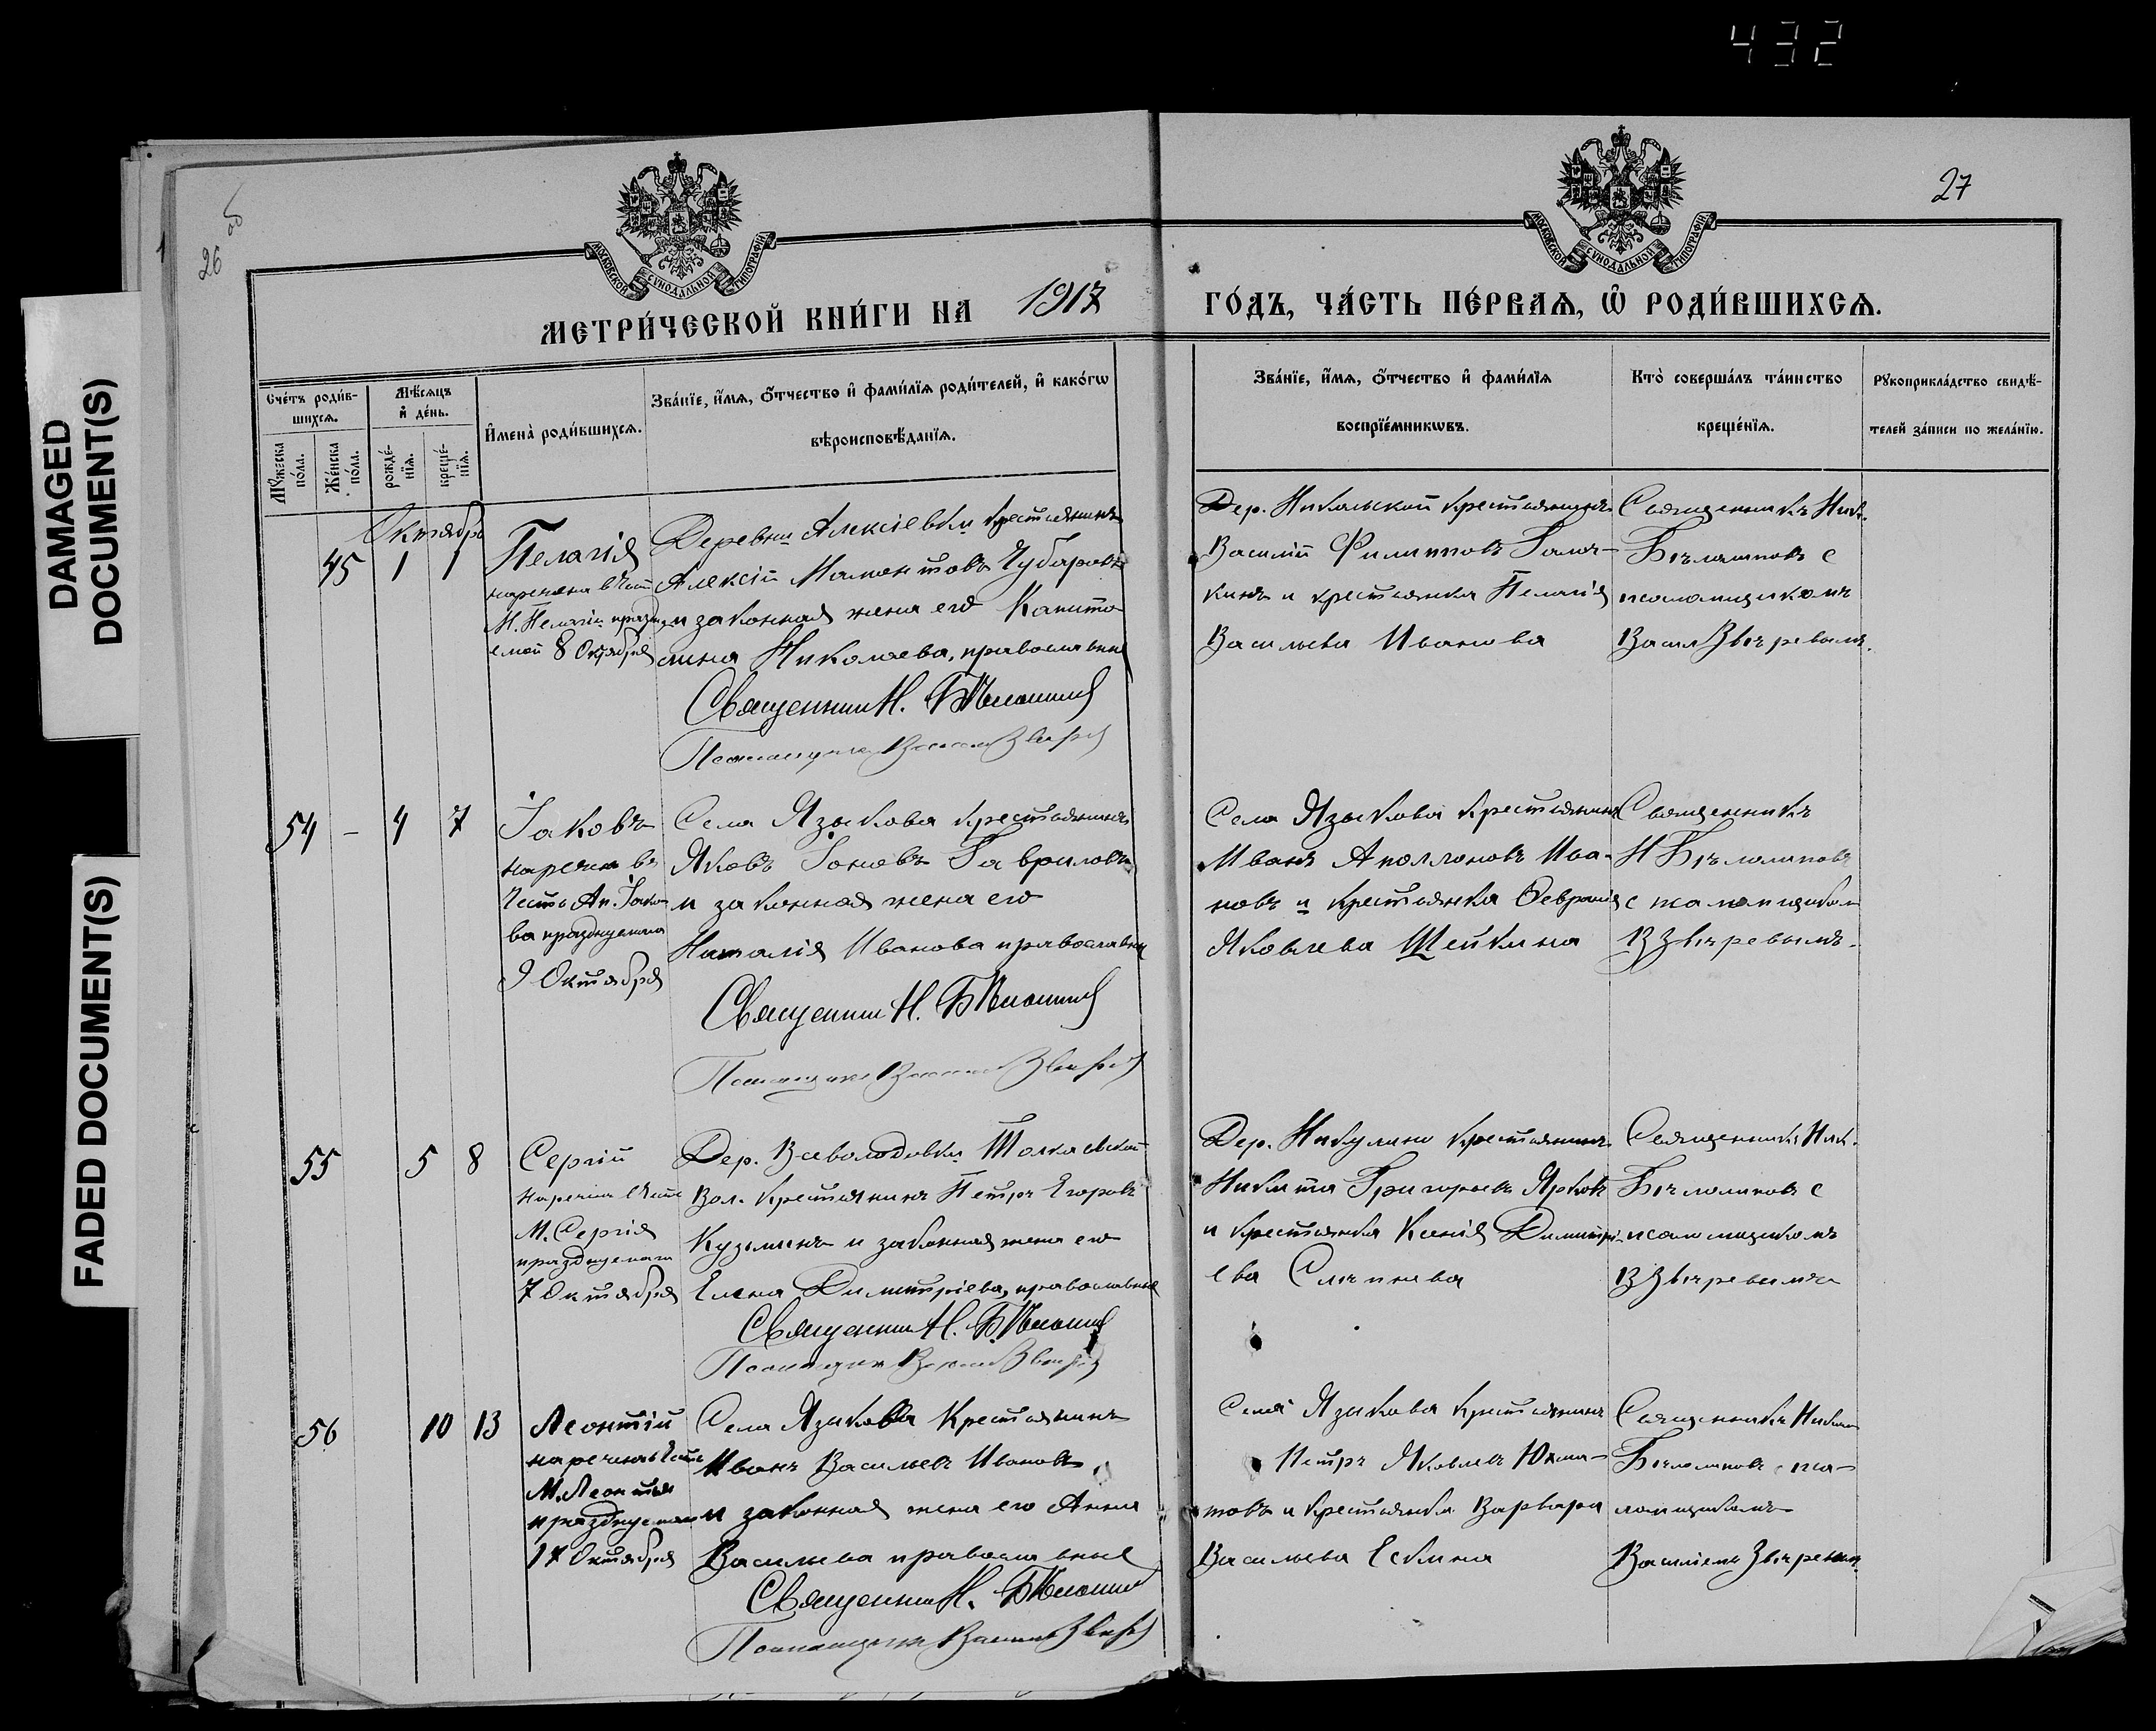 432
DAMAGED
DOCUMENT(S)
FADED DOCUMENT(S)
26 об
27
МОСКОВСКОЙ СУНОДАЛЬНОЙ ТИПОГРАФІИ
МОСКОВСКОЙ СУНОДАЛЬНОЙ ТИПОГРАФІИ
МЕТРИ́ЧЕСКОЙ КНИ́ГИ НА 1917 ГО́ДЪ, ЧА́СТЬ ПЕ́РВАѦ, Ѡ҆ РОДИ́ВШИХСѦ.
Сче́тъ роди́в-
шихсѧ.
Мꙋ́жеска
по́ла.
Же́нска
по́ла.
Мѣ́сѧцъ
и҆ де́нь.
рожде́-
нїѧ.
креще́-
нїѧ.
И҆мена̀ роди́вшихсѧ.
Зва́нїе, и҆́мѧ, ѻ҆́тчество и҆ фами́лїѧ роди́телей, и҆ како́гѡ
вѣроисповѣ́данїѧ.
Зва́нїе, и҆́мѧ, ѻ҆́тчество и҆ фами́лїѧ
воспрїе́мникѡвъ.
Кто̀ соверша́лъ та́инство
креще́нїѧ.
Рꙋкоприкла́дство свидѣ́-
телей за́писи по жела́нїю.
Октябрь
45 1 1
Пелагія
наречена в честь
М. Пелагіи праздну
емой 8 Октября
Деревни Алексіевки крестьянинъ
Алексій Мамонтовъ Чубаровъ
и законная жена его Капито
лина Николаева, православные
Священникъ Н. Бѣлолиповъ
Псаломщикъ Василій Звѣревъ
Дер. Никольской крестьянинъ
Василій Филипповъ
кинъ и крестьянка Пелагія
Васильева Иванова
Священникъ Ник.
Бѣлолиповъ с
псаломщикомъ
Васил Звѣревымъ.
54 – 4 7
Іаковъ
наречен въ
честь Ап. Іако
ва празднуемаго
9 Октября
Села Языкова крестьянинъ
Яковъ Іоновъ Гавриловъ
и законная жена его
Наталія Иванова православные
Священникъ Н. Бѣлолиповъ
Псаломщикъ Василій Звѣревъ
Села Языкова крестьянинъ
Иванъ Аполлоновъ Ива-
новъ и крестьянка Февронія
Яковлева Щейкина
Священникъ
Н Бѣлолиповъ
с псаломщиком
В Звѣревымъ.
55 5 8
Сергій
наречен в честь
М. Сергія
празднуемаго
7 Октября
Дер. Всеволодовки Толкаевской
Вол. крестьянинъ Петръ Егоровъ
Кузьминъ и законная жена его
Елена Димитріева, православные
Священникъ Н. Бѣлолиповъ
Псаломщикъ Василій Звѣревъ
Дер. Никулино крестьянинъ
Никита Григорьевъ Ярковъ
и крестьянка Ксенія Димитрі-
ева
Священникъ Ник.
Бѣлолиповъ с
псаломщикомъ
В Звѣревымъ
56 10 13
Леонтій
наречен в честь
М. Леонтія
празднуемаго
17 Октября
Села Языкова Крестьянинъ
Иванъ Васильевъ Ивановъ
и законная жена его Анна
Васильева православные
Священникъ Н. Бѣлолиповъ
Псаломщикъ Василій Звѣревъ
Села Языкова крестьянинъ
Петръ Яковлевъ Юма-
товъ и крестьянка Варвара
Васильева Ескина
Священникъ Николай
Бѣлолиповъ с пса-
ломщикомъ
Василіемъ Звѣревым.